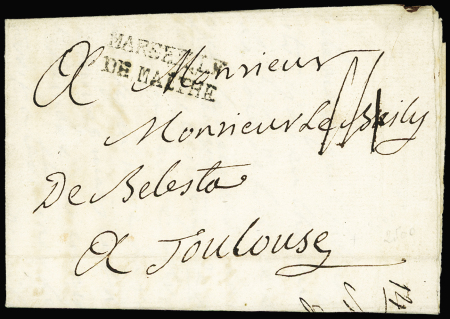 MARSEILLE
DE MALTHE
A Monsieur
Monsieur Le Bailly
De Belesta
A Toulouse